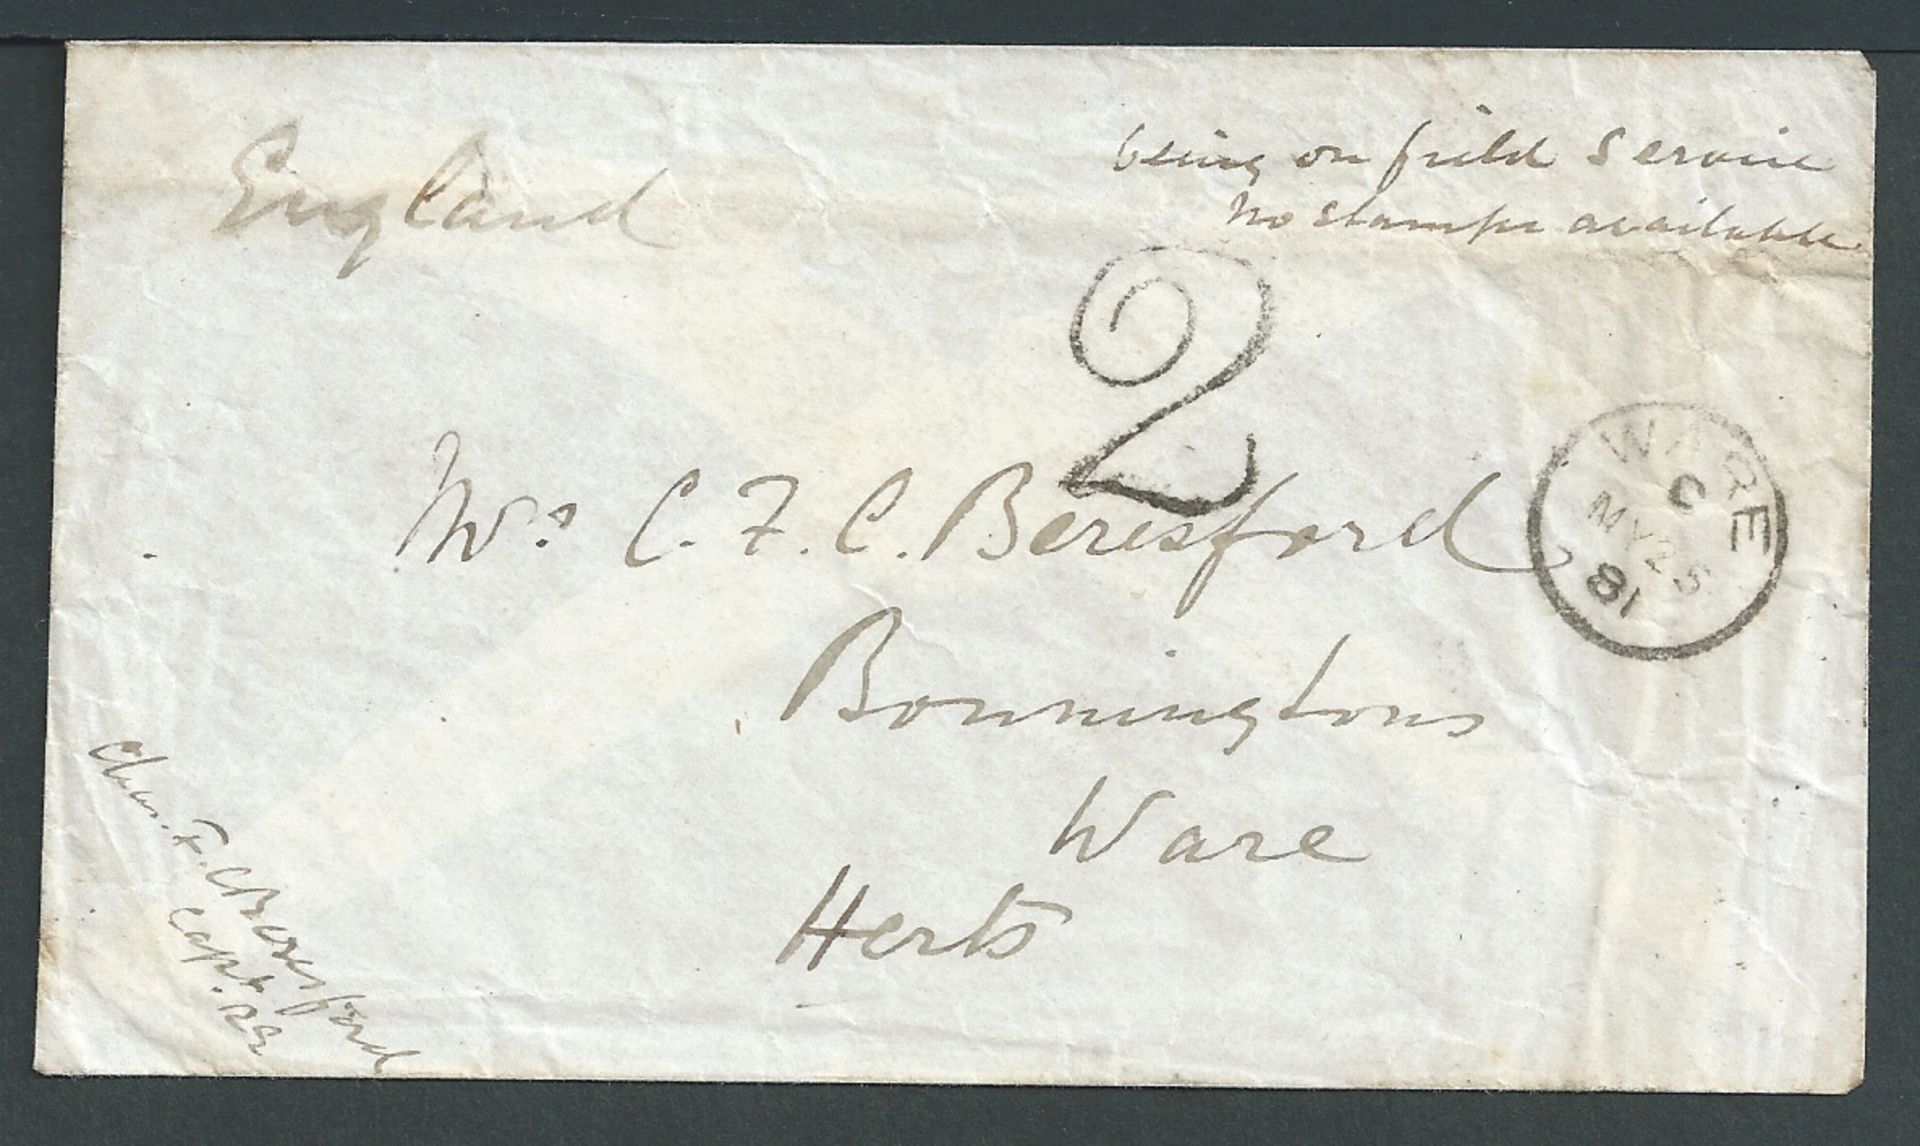 England
being on field service
no stamps available
2
Mrs C. F. C. Beresford
WARE
C
MY 25
81
Bonningtons
Ware
Herts
Chas. F. C. Beresford
Capt. RE